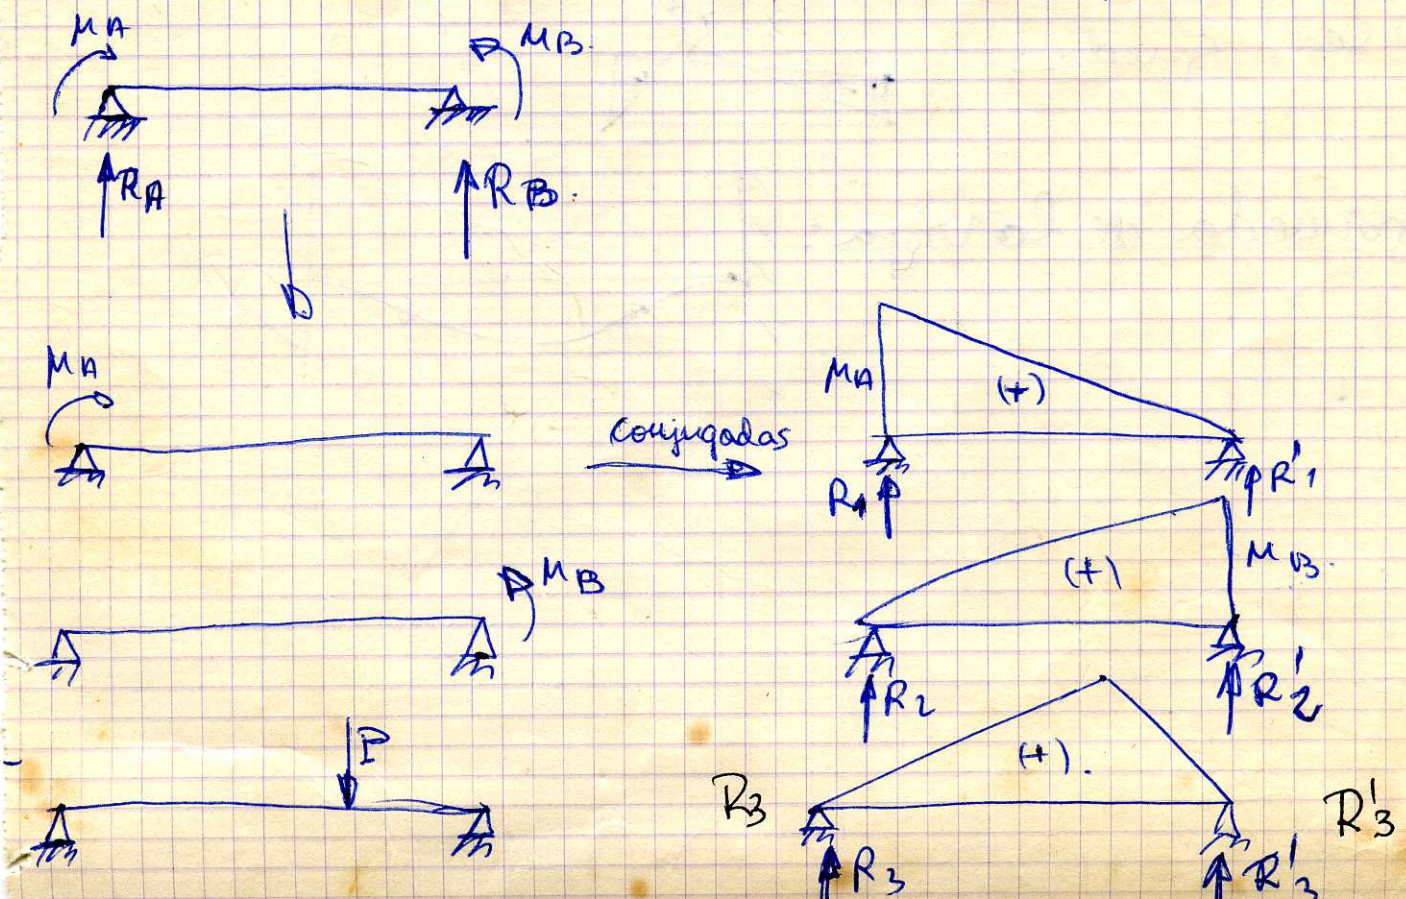 MA
MB.
RA
RB.
MA
conjugadas
MA
(+)
R1
R'1
MB
(+)
MB.
R2
R'2
P
(+).
R3
R'3
R3
R'3